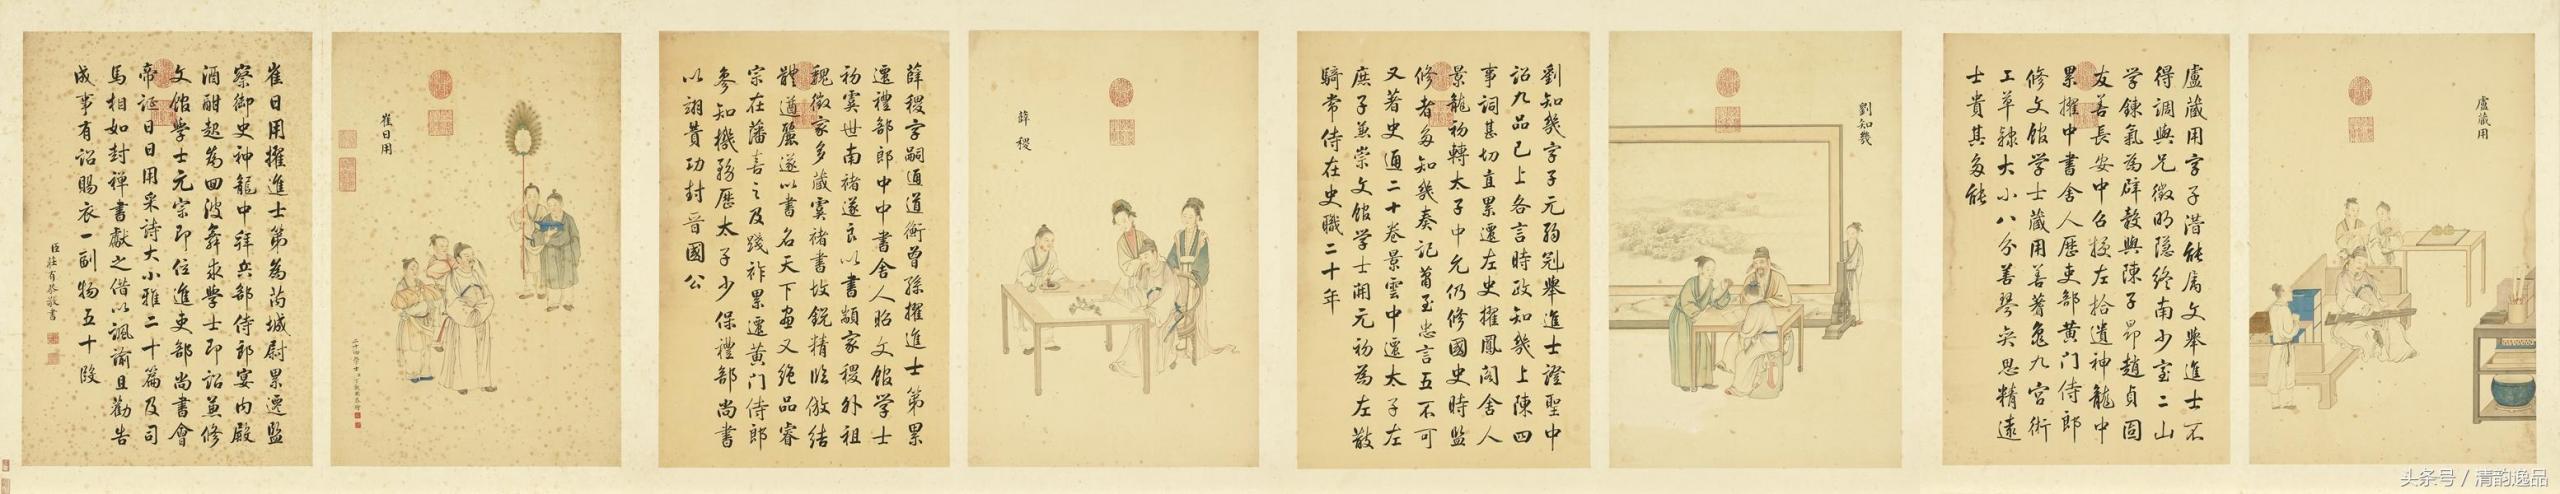 盧藏用
盧藏用字子潛能属文舉進士不
得調與兄徵明隐終南少室二山
學鍊氣為辟穀與陳子昂趙貞固
友善長安中召授左拾遺神龍中
累擢中書舍人歷吏部黄门侍郎
修文館学士藏用善蓍龜九宮術
工草隸大小八分善琴奕思精遠
士貴其多能
劉知幾
劉知幾字子元弱冠舉進士證聖中
詔九品已上各言時政知幾上陳四
事詞甚切直累遷左史擢鳳阁舍人
景龍初轉太子中允仍修國史時監
修者多知幾奏記蕭至忠言五不可
又著史通二十卷景雲中遷太子左
庶子兼崇文館学士開元初為左散
騎常侍在史職二十年
薛稷
薛稷字嗣通道衡曾孫擢進士第累
遷禮部郎中中書舍人昭文館学士
初虞世南褚遂良以書顓家稷外祖
魏徵家多藏虞褚書故銳精臨倣结
體遒麗遂以書名天下画又絕品睿
宗在藩喜之及踐祚累遷黄门侍郎
参知機務歷太子少保禮部尚書
以翊贊功封晋國公
崔日用
崔日用擢進士第為芮城尉累遷監
察御史神龍中拜兵部侍郎宴内殿
酒酣起為回波舞求學士即詔兼修
文館学士元宗即位進吏部尚書會
帝诞日日用采詩大小雅二十篇及司
馬相如封禅書獻之借以諷諭且勸告
成事有詔賜衣一副物五十段
臣莊有恭敬書
头条号 / 清韵逸品